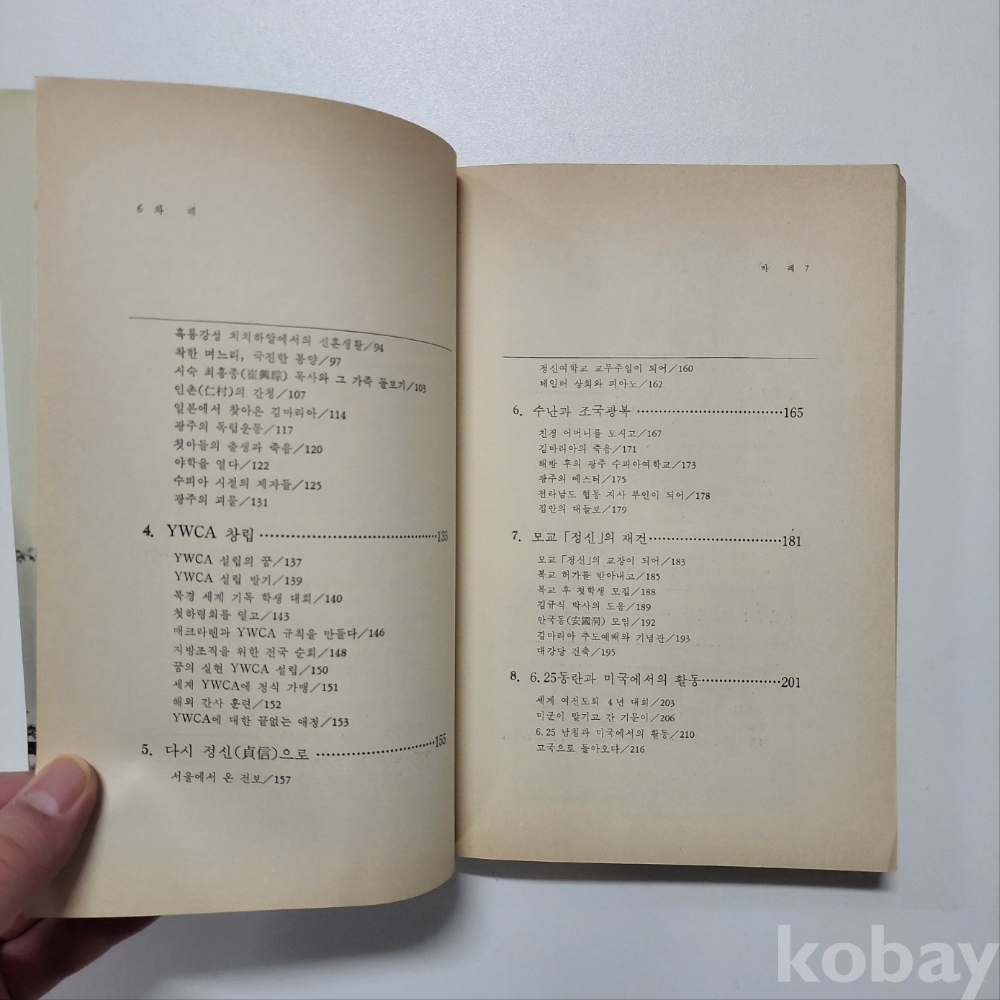 6 차 례
흑룡강성 치치하알에서의 신혼생활/94
착한 며느리, 극진한 봉양/97
시숙 최흥종(崔興琮) 목사와 그 가족 돌보기/103
인촌(仁村)의 간청/107
일본에서 찾아온 김마리아/114
광주의 독립운동/117
첫아들의 출생과 죽음/120
야학을 열다/122
수피아 시절의 제자들/125
광주의 괴물/131
4. YWCA 창립 ……………………………………135
YWCA 설립의 꿈/137
YWCA 설립 발기/139
북경 세계 기독 학생 대회/140
첫하령회를 열고/143
매크라렌과 YWCA 규칙을 만들다/146
지방조직을 위한 전국 순회/148
꿈의 실현 YWCA 설립/150
세계 YWCA에 정식 가맹/151
해외 간사 훈련/152
YWCA에 대한 끝없는 애정/153
5. 다시 정신(貞信)으로 ……………………………155
서울에서 온 전보/157
차 례 7
정신여학교 교무주임이 되어/160
테일러 상회와 피아노/162
6. 수난과 조국광복 ……………………………165
친정 어머니를 모시고/167
김마리아의 죽음/171
해방 후의 광주 수피아여학교/173
광주의 에스터/175
전라남도 협동 지사 부인이 되어/178
집안의 대들보/179
7. 모교 「정신」의 재건 ……………………………181
모교 「정신」의 교장이 되어/183
복교 허가를 받아내고/185
복교 후 첫학생 모집/188
김규식 박사의 도움/189
안국동(安國洞) 모임/192
김마리아 추도예배와 기념관/193
대강당 건축/195
8. 6.25동란과 미국에서의 활동 ………………201
세계 여전도회 4년 대회/203
미군이 맡기고 간 기문이/206
6.25 남침과 미국에서의 활동/210
고국으로 돌아오다/216
kobay